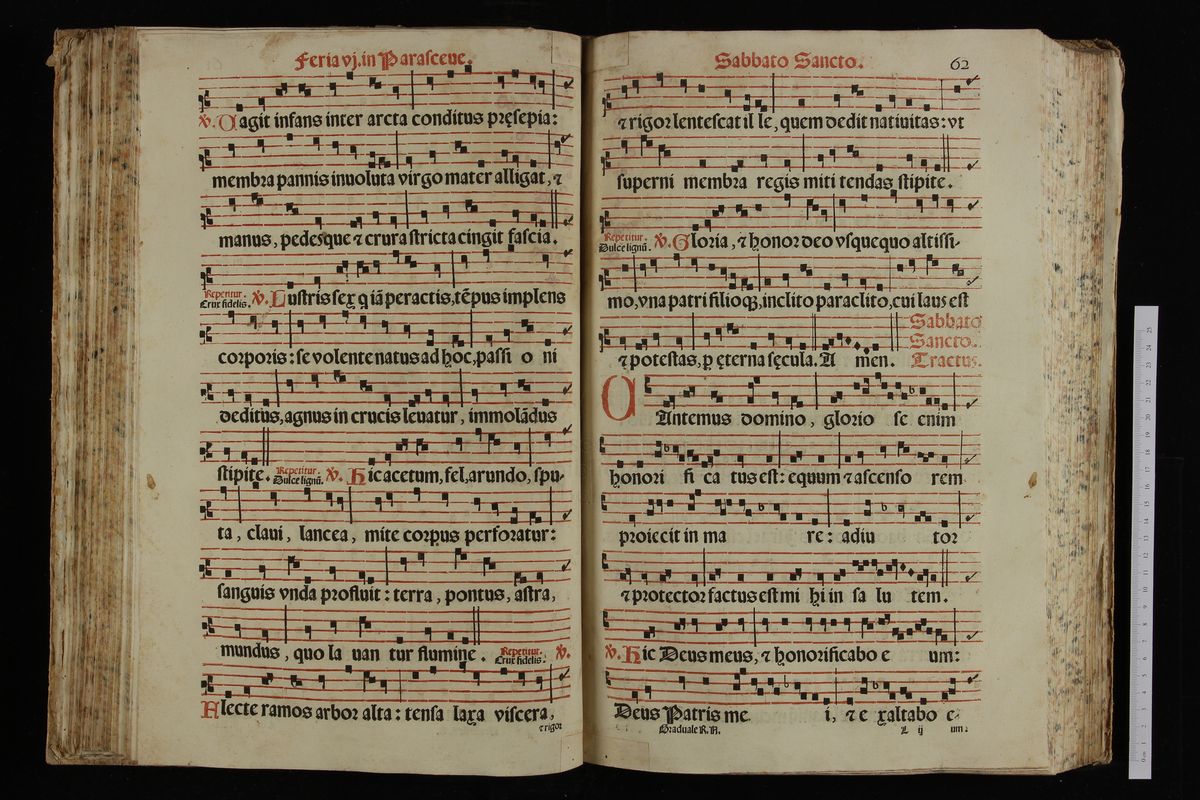 Feria vj. in Parasceue.
℣. Uagit infans inter arcta conditus pręsepia:
membra pannis inuoluta virgo mater alligat, ⁊
manus, pedesque ⁊ crura stricta cingit fascia.
Repetitur. Crux fidelis. ℣. Lustris sex q iã peractis, tẽpus implens
corporis: se volente natus ad hoc, passi o ni
deditus, agnus in crucis leuatur, immolãdus
stipite. Repetitur. Dulce lignũ. ℣. Hic acetum, fel, arundo, spu-
ta, claui, lancea, mite corpus perforatur:
sanguis vnda profluit: terra, pontus, astra,
mundus, quo la uan tur flumine. Repetitur. Crux fidelis. ℣.
Flecte ramos arbor alta: tensa laxa viscera,
⁊ rigor
Sabbato Sancto. 62
⁊ rigor lentescat il le, quem dedit natiuitas: vt
superni membra regis miti tendas stipite.
Repetitur. Dulce lignũ. ℣. Gloria, ⁊ honor deo vsquequo altissi-
mo, vna patri filioq;, inclito paraclito, cui laus est
⁊ potestas, ꝑ ęterna sęcula. A men. Sabbato Sancto. Tractus.
CAntemus domino, glorio se enim
honori fi ca tus est: equum ⁊ ascenso rem
proiecit in ma re: adiu tor
⁊ protector factus est mi hi in sa lu tem.
℣. Hic Deus meus, ⁊ honorificabo e um:
Deus Patris me i, ⁊ e xaltabo e-
Graduale R.A. L ij um: